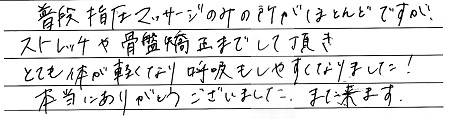 普段指圧マッサージのみの所がほとんどですが、
ストレッチや骨盤矯正までして頂き
とても体が軽くなり呼吸もしやすくなりました!
本当にありがとうございました。また来ます。